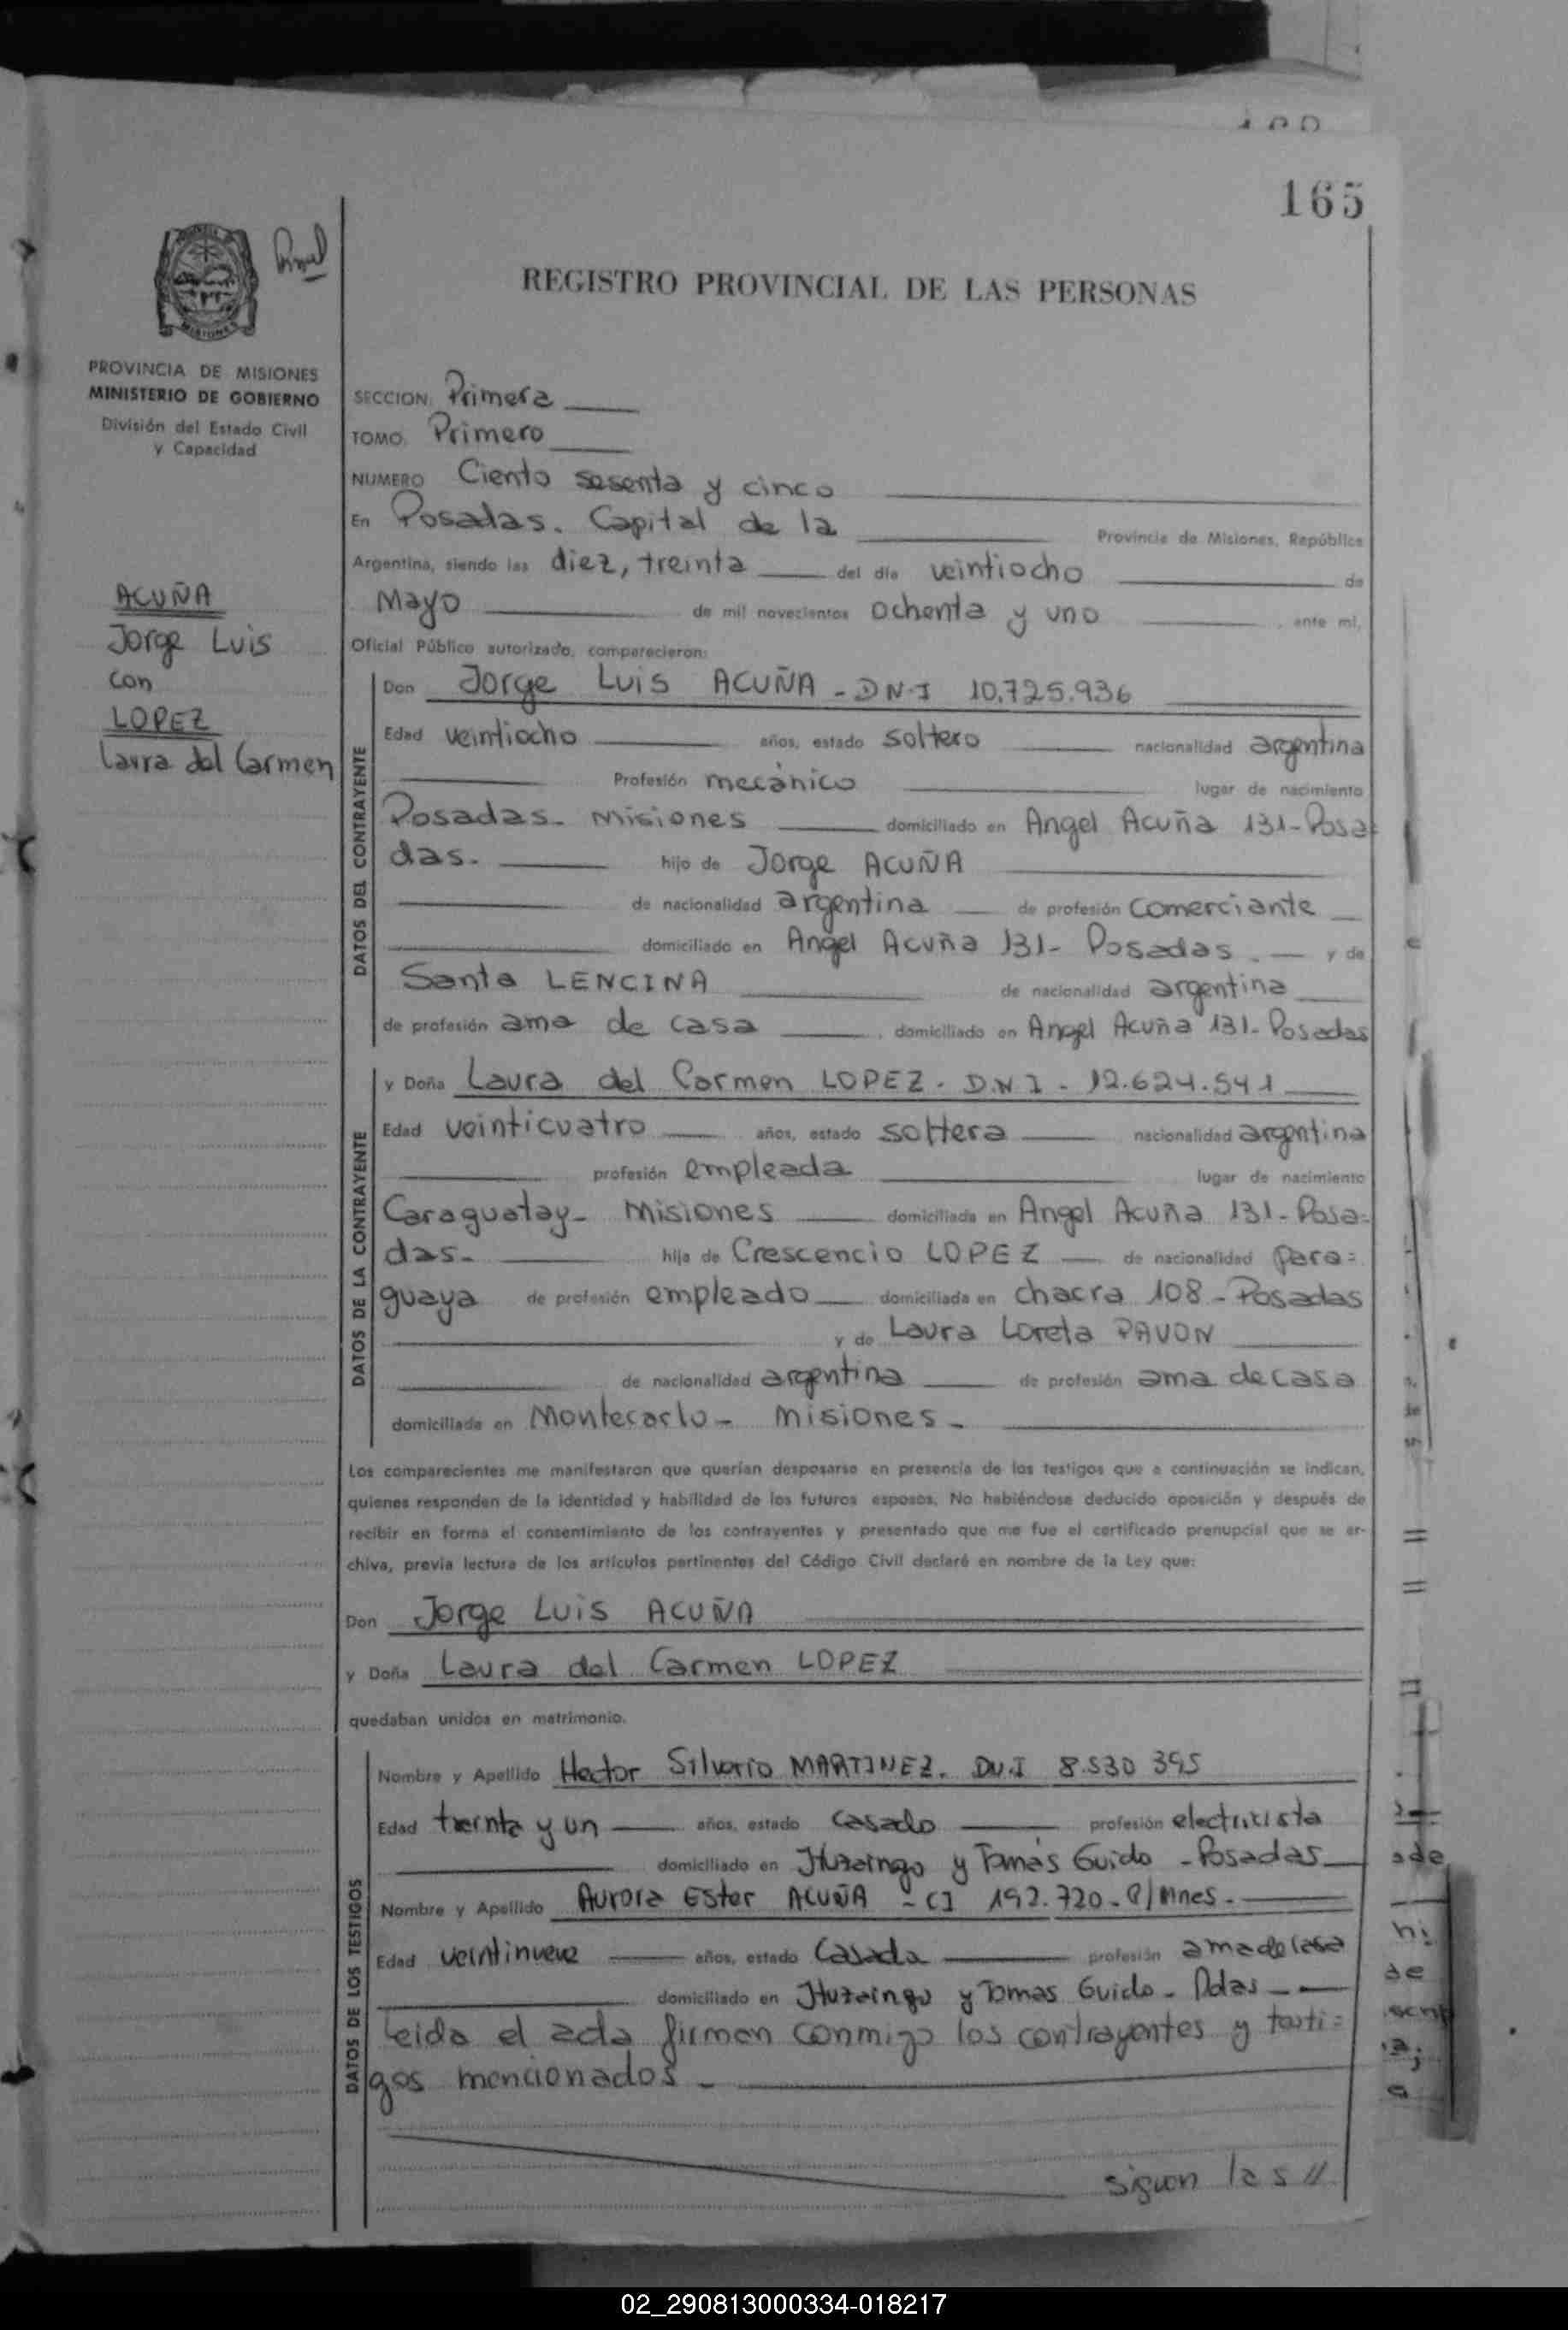 165
REGISTRO PROVINCIAL DE LAS PERSONAS
MISIONES
PROVINCIA DE MISIONES
MINISTERIO DE GOBIERNO
División del Estado Civil
y Capacidad
ACUÑA
Jorge Luis
con
LOPEZ
Laura del Carmen
SECCION: Primera
TOMO: Primero
NUMERO Ciento sesenta y cinco
En Posadas. Capital de la Provincia de Misiones, República
Argentina, siendo las diez, treinta del día veintiocho de
Mayo de mil novecientos ochenta y uno, ante mi,
Oficial Público autorizado, comparecieron:
DATOS DEL CONTRAYENTE
Don Jorge Luis ACUÑA - DNI 10.725.936
Edad veintiocho años, estado soltero nacionalidad argentina
Profesión mecánico lugar de nacimiento
Posadas - Misiones domiciliado en Angel Acuña 131 - Posa=
das. hijo de Jorge ACUÑA
de nacionalidad argentina de profesión comerciante
domiciliado en Angel Acuña 131 - Posadas. y de
Santa LENCINA de nacionalidad argentina
de profesión ama de casa, domiciliado en Angel Acuña 131 - Posadas
DATOS DE LA CONTRAYENTE
y Doña Laura del Carmen LOPEZ - D.N.I - 12.624.541
Edad veinticuatro años, estado soltera nacionalidad argentina
profesión empleada lugar de nacimiento
Caraguatay - Misiones domiciliada en Angel Acuña 131 - Posa=
das - hija de Crescencio LOPEZ de nacionalidad para=
guaya de profesión empleado domiciliada en chacra 108 - Posadas
y de Laura Loreta PAVON
de nacionalidad argentina de profesión ama de casa
domiciliada en Montecarlo - Misiones -
Los comparecientes me manifestaron que querían desposarse en presencia de los testigos que a continuación se indican,
quienes responden de la identidad y habilidad de los futuros esposos. No habiéndose deducido oposición y después de
recibir en forma el consentimiento de los contrayentes y presentado que me fue el certificado prenupcial que se ar-
chiva, previa lectura de los artículos pertinentes del Código Civil declaré en nombre de la Ley que:
Don Jorge Luis ACUÑA
y Doña Laura del Carmen LOPEZ
quedaban unidos en matrimonio.
DATOS DE LOS TESTIGOS
Nombre y Apellido Hector Silverio MARTINEZ. DN.I 8.530 395
Edad treinta y un años, estado casado profesión electricista
domiciliado en Ituzaingo y Tomás Guido - Posadas
Nombre y Apellido Aurora Ester ACUÑA - CI 192.720 - P/Mnes -
Edad veintinueve años, estado casada profesión ama de casa
domiciliado en Ituzaingo y Tomas Guido - Pdas -
Leida el acta firman conmigo los contrayentes y testi=
gos mencionados -
siguen las //
02_290813000334-018217